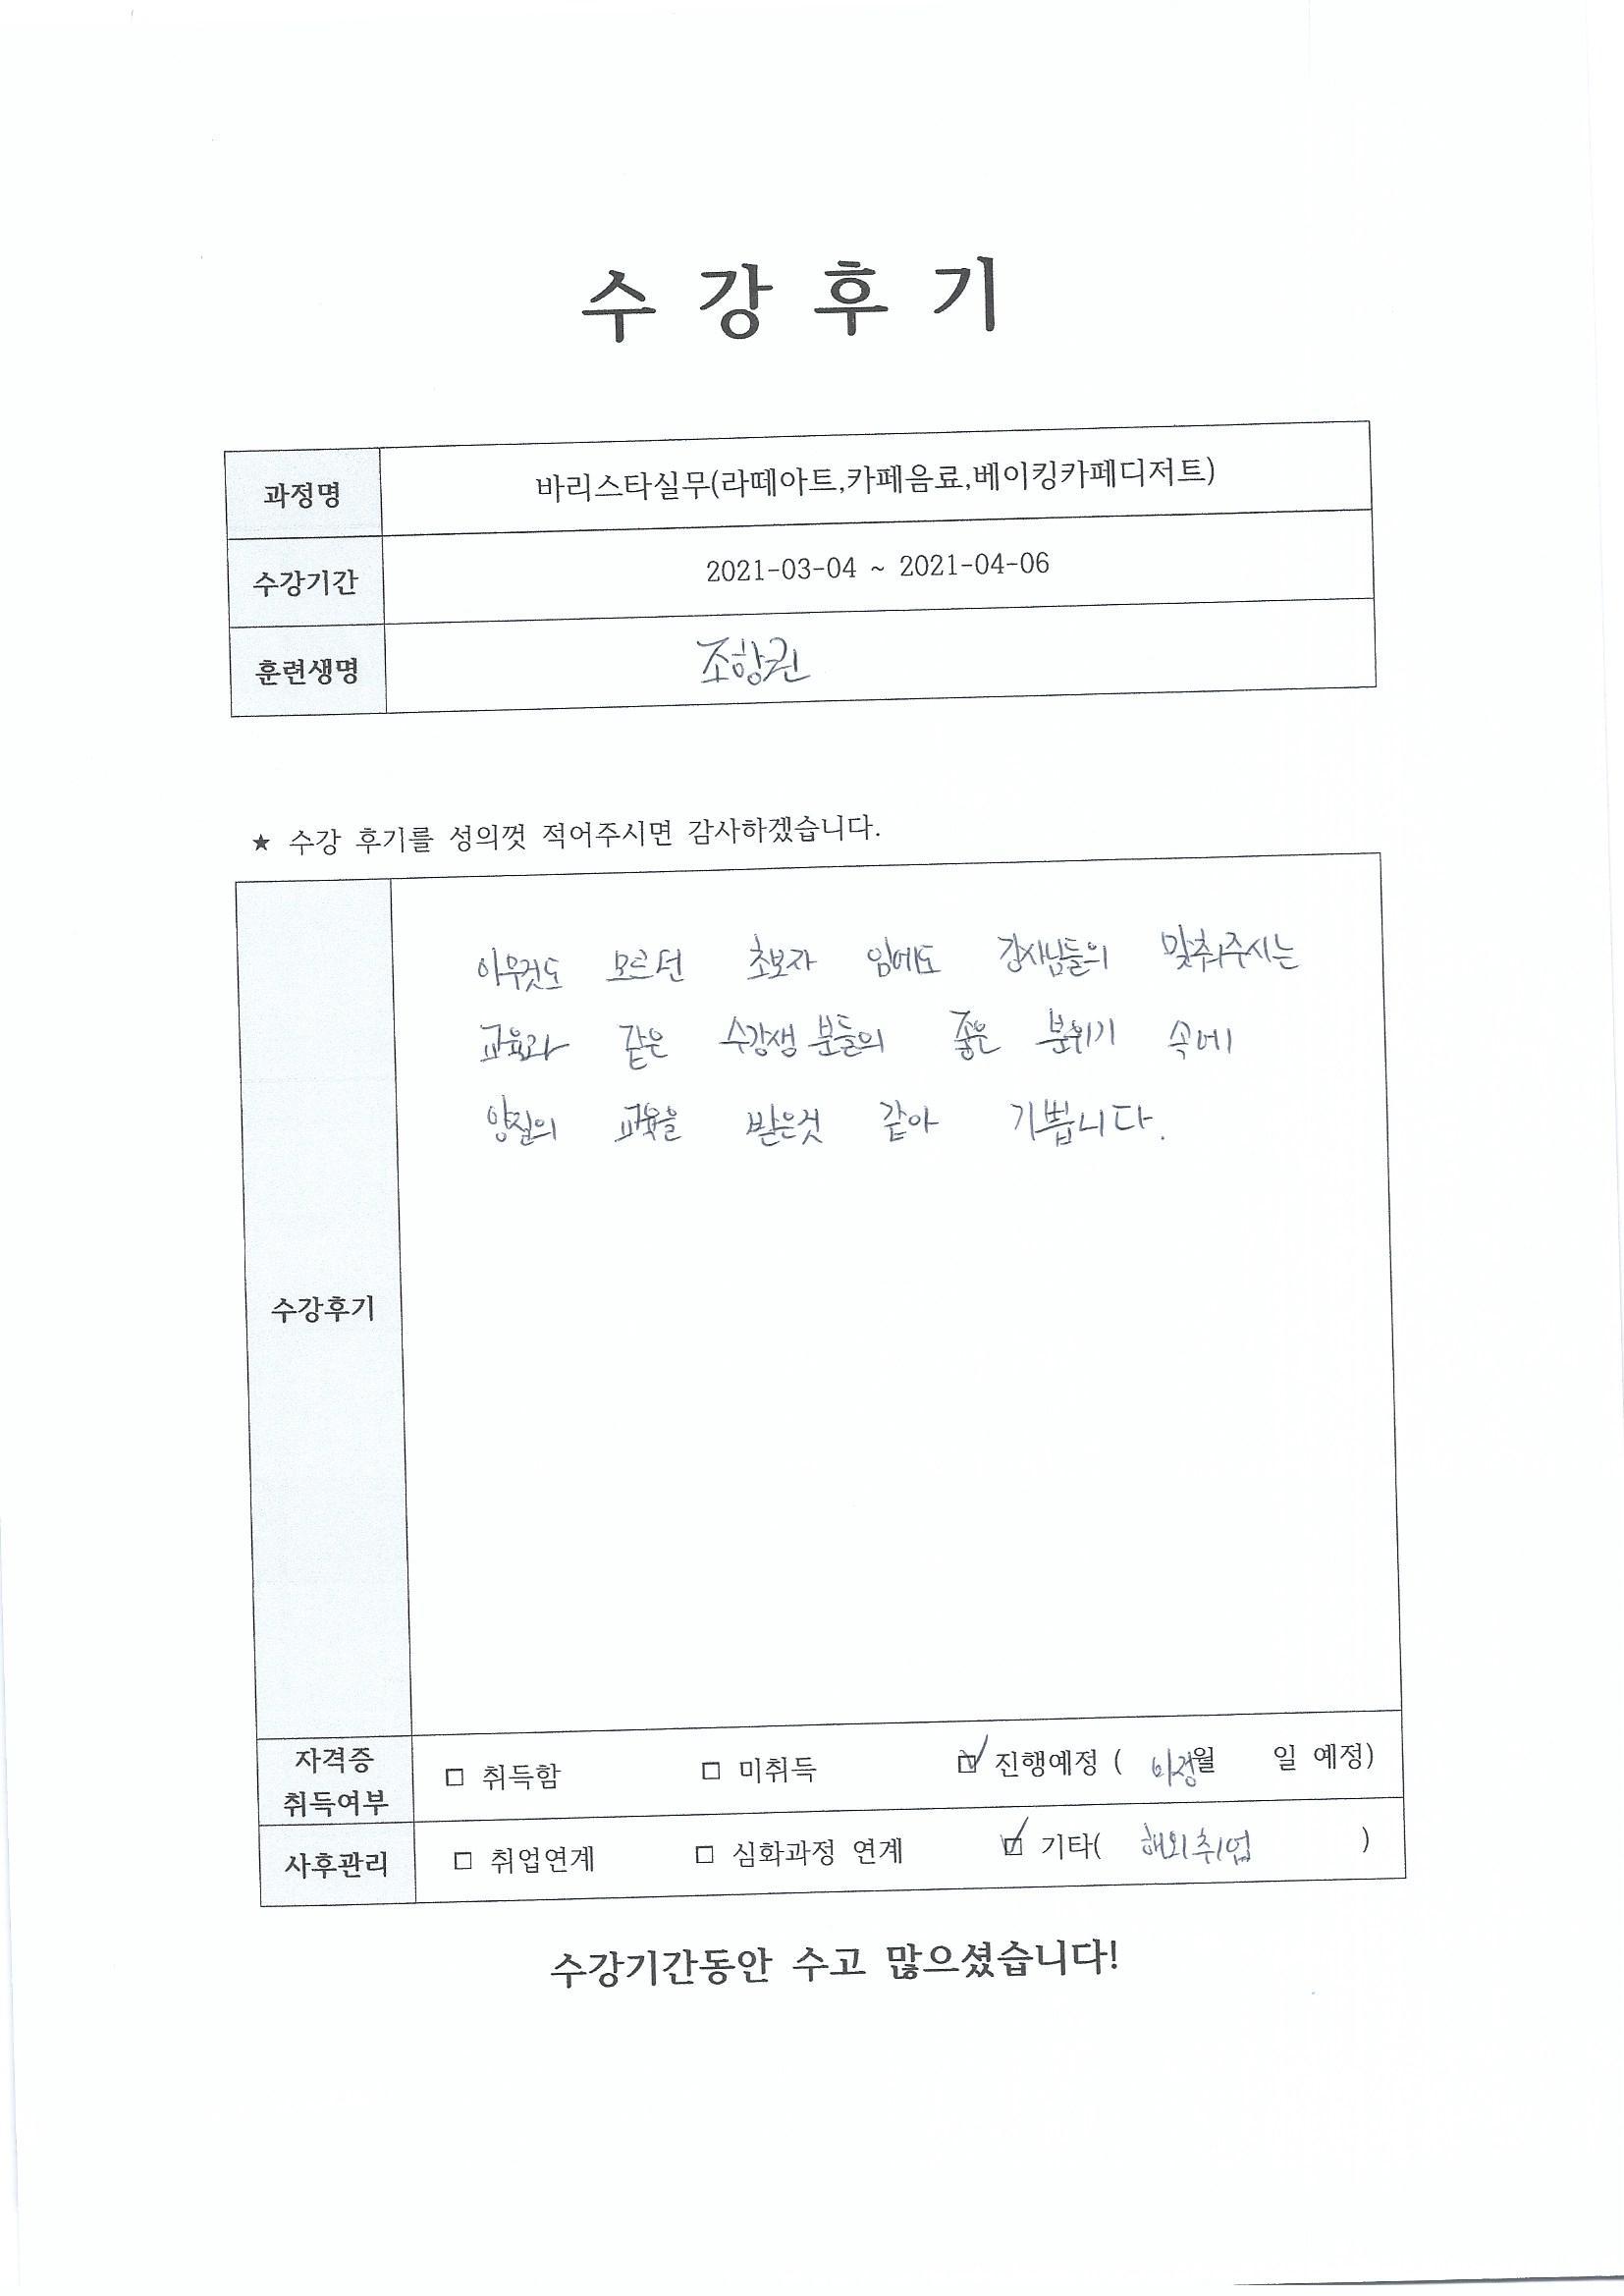 수 강 후 기
과정명 바리스타실무(라떼아트,카페음료,베이킹카페디저트)
수강기간 2021-03-04 ~ 2021-04-06
훈련생명 조항권
★ 수강 후기를 성의껏 적어주시면 감사하겠습니다.
아무것도 모르던 초보자 임에도 강사님들의 맞춰주시는
교육과 같은 수강생 분들의 좋은 분위기 속에
양질의 교육을 받은것 같아 기쁩니다.
수강후기
자격증
취득여부
□ 취득함 □ 미취득 ☑ 진행예정 ( 미정월 일 예정)
사후관리 □ 취업연계 □ 심화과정 연계 ☑ 기타( 해외취업 )
수강기간동안 수고 많으셨습니다!